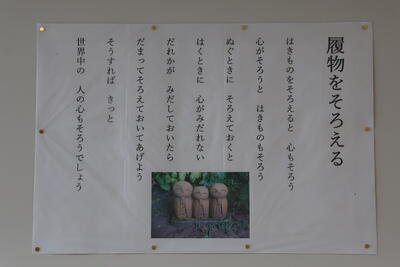 履物をそろえる
はきものをそろえると　心もそろう
心がそろうと　はきものもそろう
ぬぐときに　そろえておくと
はくときに　心がみだれない
だれかが　みだしておいたら
だまってそろえておいてあげよう
そうすれば　きっと
世界中の　人の心もそろうでしょう